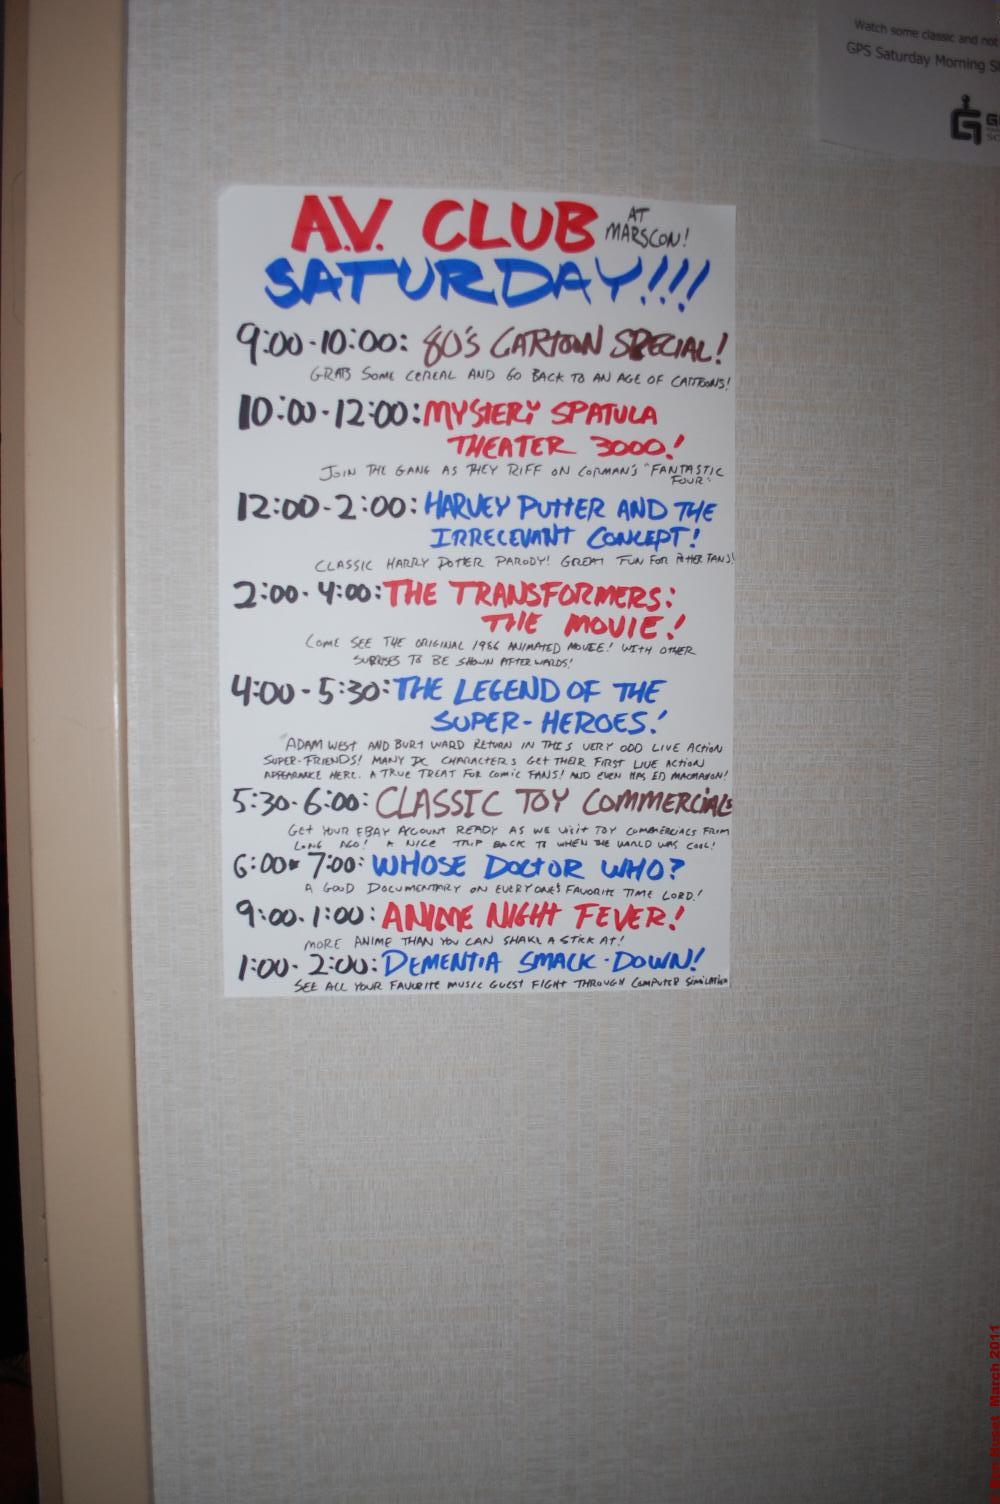 Watch some classic and not
GPS Saturday Morning S
A.V. CLUB AT MARSCON!
SATURDAY!!!
9:00-10:00: 80'S CARTOON SPECIAL!
GRAB SOME CEREAL AND GO BACK TO AN AGE OF CARTOONS!
10:00-12:00: MYSTERY SPATULA
THEATER 3000!
JOIN THE GANG AS THEY RIFF ON CORMAN'S "FANTASTIC
FOUR"
12:00-2:00: HARVEY PUTTER AND THE
IRRELEVANT CONCEPT!
CLASSIC HARRY POTTER PARODY! GREAT FUN FOR POTTER FANS!
2:00-4:00: THE TRANSFORMERS:
THE MOVIE!
COME SEE THE ORIGINAL 1986 ANIMATED MOVIE! WITH OTHER
TO BE SHOWN AFTERWARDS!
4:00-5:30: THE LEGEND OF THE
SUPER-HEROES!
ADAM WEST AND BURT WARD RETURN IN THIS VERY ODD LIVE ACTION
SUPER-FRIENDS! MANY DC CHARACTERS GET THEIR FIRST LIVE ACTION
APPEARANCE HERE. A TRUE TREAT FOR COMIC FANS! AND EVEN HAS ED MACMAHON!
5:30-6:00: CLASSIC TOY COMMERCIALS
GET YOUR EBAY ACCOUNT READY AS WE VISIT TOY COMMERCIALS FROM
LONG AGO! A NICE TRIP BACK TO WHEN THE WORLD WAS COOL!
6:00-7:00: WHOSE DOCTOR WHO?
A GOOD DOCUMENTARY ON EVERYONE'S FAVORITE TIME LORD!
9:00-1:00: ANIME NIGHT FEVER!
MORE ANIME THAN YOU CAN SHAKE A STICK AT!
1:00-2:00: DEMENTIA SMACK-DOWN!
SEE ALL YOUR FAVORITE MUSIC GUEST FIGHT THROUGH COMPUTER SIMULATION
March 2011